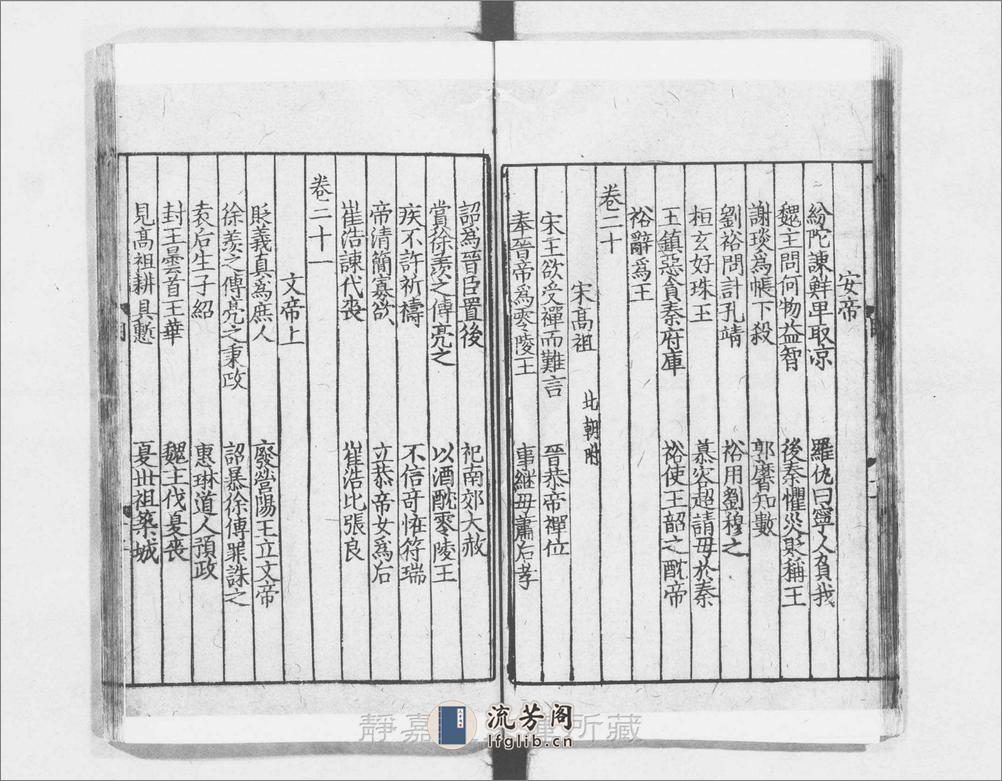 安帝
紛陀諫鮮卑取凉 羅仇曰寧人負我
魏主問何物益智 後秦懼災貶稱王
謝琰為帳下殺 郭黁知數
劉裕問計孔靖 裕用劉穆之
桓玄好珠玉 慕容超請母於秦
王鎮惡貪秦府庫 裕使王韶之酖帝
裕辭為王
卷二十
宋高祖 北朝附
宋王欲受禪而難言 晉恭帝禪位
奉晉帝為零陵王 事繼母蕭后孝
詔為晉臣置後 祀南郊大赦
賞徐羨之傅亮之 以酒酖零陵王
疾不許祈禱 不信奇怪符瑞
帝清簡寡欲 立恭帝女為后
崔浩諫伐喪 崔浩比張良
卷二十一
文帝上
貶義真為庶人 廢營陽王立文帝
徐羨之傅亮之秉政 詔暴徐傅罪誅之
袁后生子紹 惠琳道人預政
封王曇首王華 魏主伐夏喪
見高祖耕具慙 夏世祖築城
靜嘉 所藏
流芳阁
lfglib.cn